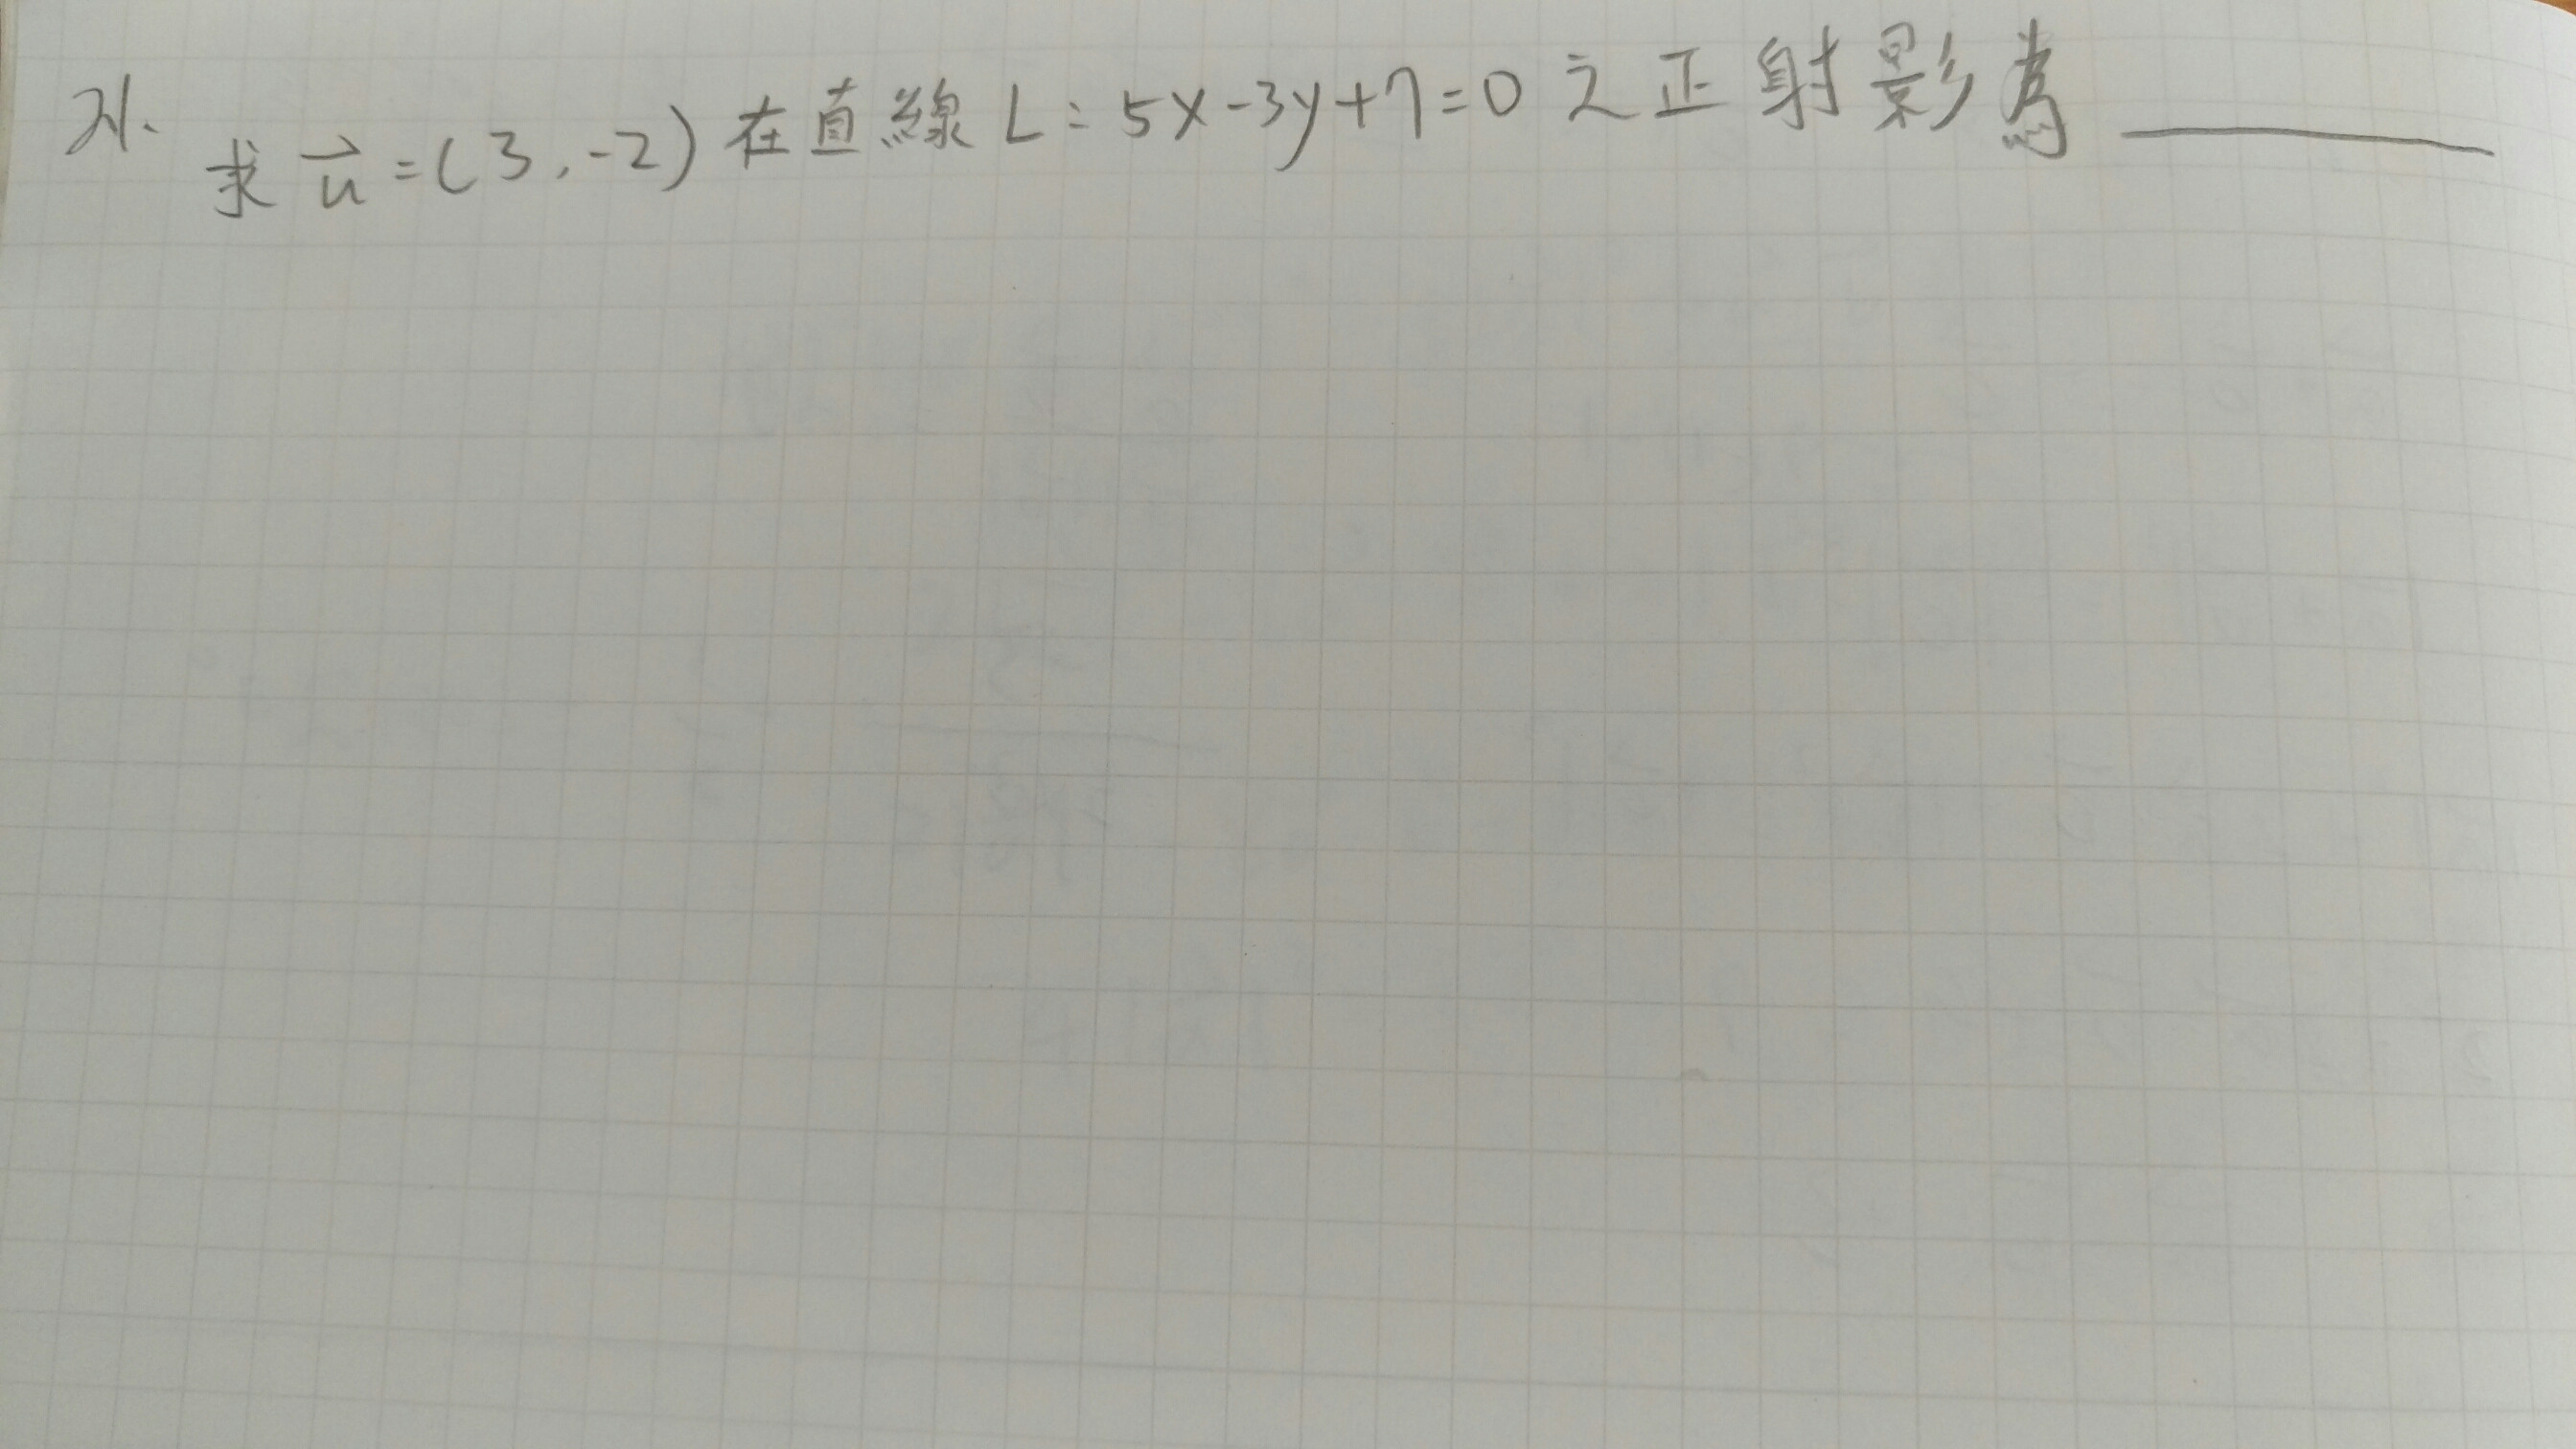 21. 求 u⃗ = (3, -2) 在直線 L: 5x-3y+7=0 之正射影為 ______